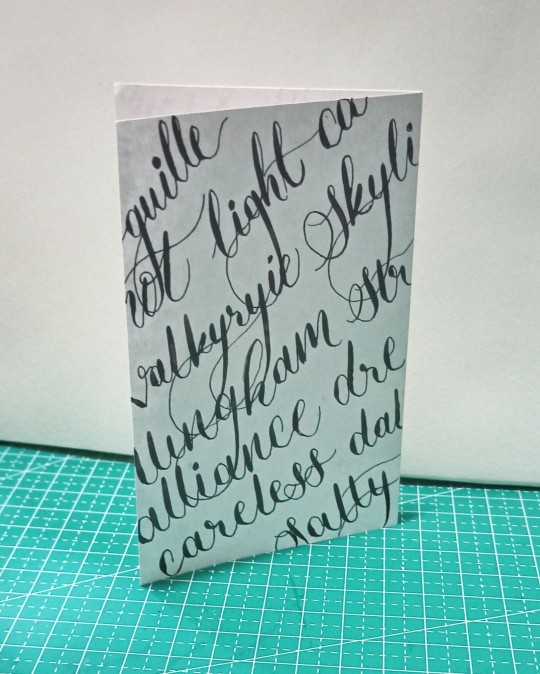 guille
light ca
valkyryie Skyli
Str
alliance dre
careless dal
Salty